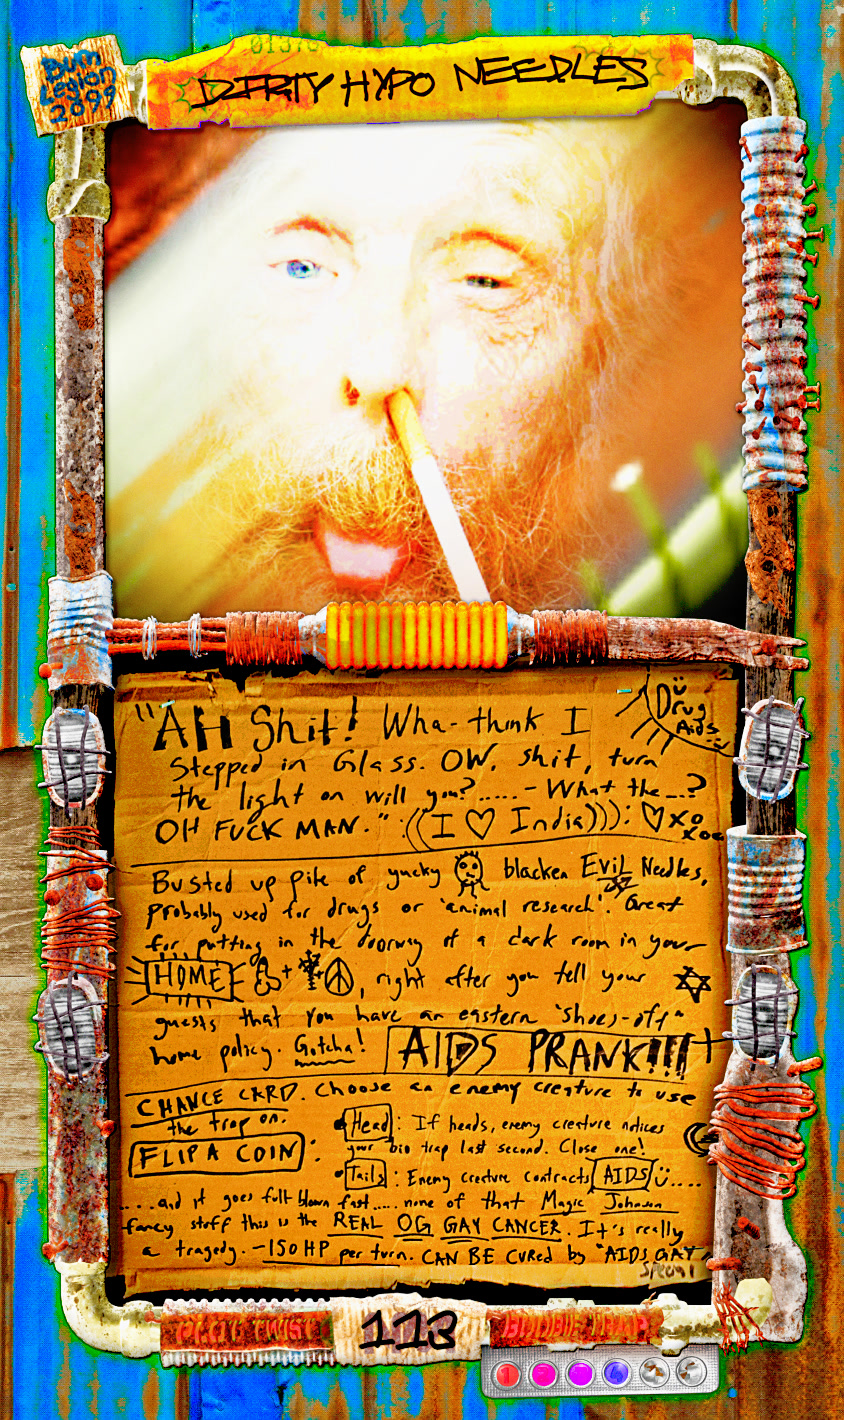 01376
Bum
Legion
2099
DIRTY HYPO NEEDLES
Drug
Aids
"AH Shit! Wha-think I
Stepped in Glass. OW. shit, turn
the light on will you?......- What the __.?
OH FUCK MAN." :((I ♡ India))): ♡xo
xoo
Busted up pile of yucky blacken Evil Needles,
probably used for drugs or 'animal research'. Great
for putting in the doorway of a dark room in your
HOME + , right after you tell your
guests that you have an eastern 'shoes-off"
home policy. Gotcha! AIDS PRANK!!!
CHANCE CARD. Choose an enemy creature to use
the trap on.
FLIP A COIN:
• Head: If heads, enemy creature notices
your bio trap last second. Close one!
• Tails: Enemy creature contracts AIDS ü....
....and it goes full blown fast..... none of that Magic Johnson
fancy stuff this is the REAL OG GAY CANCER. It's really
a tragedy. -150 HP per turn. CAN BE CURED by "AIDS GAY"
Special
PLOT TWIST
113
BOOBIE TRAP
1